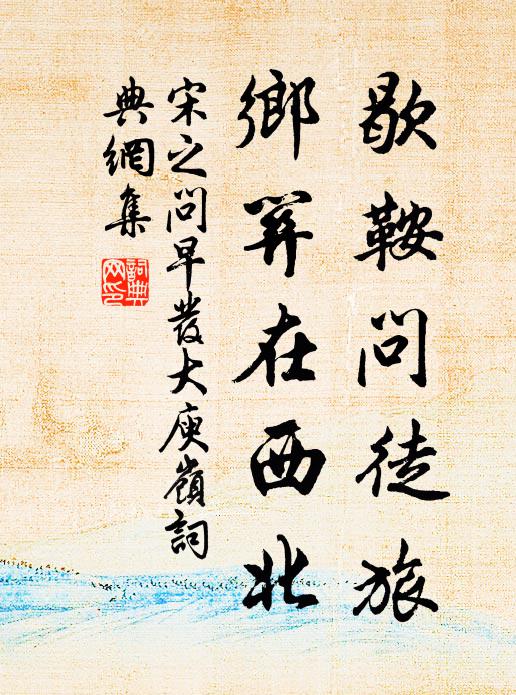 歇鞍問徒旅
鄉關在西北
宋之問早發大庾嶺詞
典網集
詞典
网印